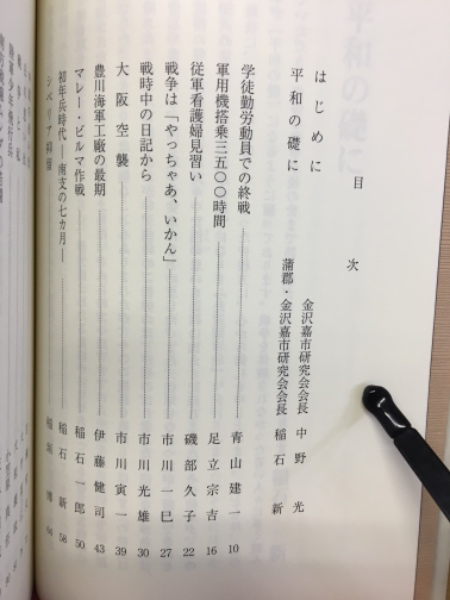 目次
はじめに 金沢嘉市研究会会長 中野光
平和の礎に 蒲郡・金沢嘉市研究会会長 稲石新
学徒勤労動員での終戦 青山建一 10
軍用機搭乗三五〇〇時間 足立宗吉 16
従軍看護婦見習い 磯部久子 22
戦争は「やっちゃあ、いかん」 市川一巳 27
戦時中の日記から 市川光雄 30
大阪空襲 市川寅一 39
豊川海軍工廠の最期 伊藤健司 43
マレー・ビルマ作戦 稲石一郎 50
初年兵時代―南支の七カ月― 稲石新 58
シベリア抑留 稲垣博 64